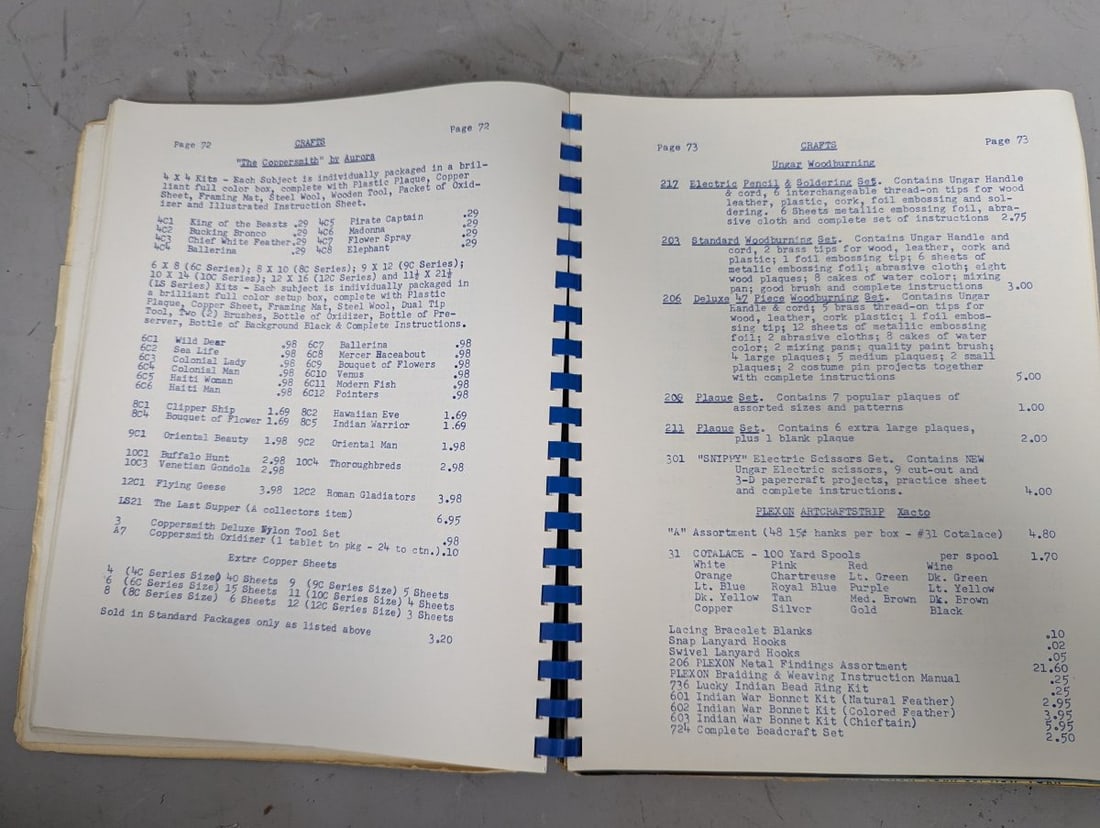 Page 72 CRAFTS Page 72
"The Coppersmith" by Aurora
4 X 4 Kits - Each Subject is individually packaged in a bril-
liant full color box, complete with Plastic Plaque, Copper
Sheet, Framing Mat, Steel Wool, Wooden Tool, Packet of Oxid-
izer and Illustrated Instruction Sheet.
4C1 King of the Beasts .29 4C5 Pirate Captain .29
4C2 Bucking Bronco .29 4C6 Madonna .29
4C3 Chief White Feather .29 4C7 Flower Spray .29
4C4 Ballerina .29 4C8 Elephant .29
6 X 8 (6C Series); 8 X 10 (8C Series); 9 X 12 (9C Series);
10 X 14 (10C Series); 12 X 16 (12C Series) and 11½ X 21½
(LS Series) Kits - Each subject is individually packaged in
a brilliant full color setup box, complete with Plastic
Plaque, Copper Sheet, Framing Mat, Steel Wool, Dual Tip
Tool, Two (2) Brushes, Bottle of Oxidizer, Bottle of Pre-
server, Bottle of Background Black & Complete Instructions.
6C1 Wild Dear .98 6C7 Ballerina .98
6C2 Sea Life .98 6C8 Mercer Raceabout .98
6C3 Colonial Lady .98 6C9 Bouquet of Flowers .98
6C4 Colonial Man .98 6C10 Venus .98
6C5 Haiti Woman .98 6C11 Modern Fish .98
6C6 Haiti Man .98 6C12 Pointers .98
8C1 Clipper Ship 1.69 8C2 Hawaiian Eve 1.69
8C4 Bouquet of Flower 1.69 8C5 Indian Warrior 1.69
9C1 Oriental Beauty 1.98 9C2 Oriental Man 1.98
10C1 Buffalo Hunt 2.98 10C4 Thoroughbreds 2.98
10C3 Venetian Gondola 2.98
12C1 Flying Geese 3.98 12C2 Roman Gladiators 3.98
LS21 The Last Supper (A collectors item) 6.95
3 Coppersmith Deluxe Nylon Tool Set .98
A7 Coppersmith Oxidizer (1 tablet to pkg - 24 to ctn.) .10
Extre Copper Sheets
4 (4C Series Size) 40 Sheets 9 (9C Series Size) 5 Sheets
6 (6C Series Size) 15 Sheets 11 (10C Series Size) 4 Sheets
8 (8C Series Size) 6 Sheets 12 (12C Series Size) 3 Sheets
Sold in Standard Packages only as listed above 3.20
Page 73 CRAFTS Page 73
Ungar Woodburning
217 Electric Pencil & Soldering Set. Contains Ungar Handle
& cord, 6 interchangeable thread-on tips for wood
leather, plastic, cork, foil embossing and sol-
dering. 6 Sheets metallic embossing foil, abra-
sive cloth and complete set of instructions 2.75
203 Standard Woodburning Set. Contains Ungar Handle and
cord, 2 brass tips for wood, leather, cork and
plastic; 1 foil embossing tip; 6 sheets of
metalic embossing foil; abrasive cloth; eight
wood plaques; 8 cakes of water color; mixing
pan; good brush and complete instructions 3.00
206 Deluxe 47 Piece Woodburning Set. Contains Ungar
Handle & cord; 5 brass thread-on tips for
wood, leather, cork plastic; 1 foil embos-
sing tip; 12 sheets of metallic embossing
foil; 2 abrasive cloths; 8 cakes of water
color; 2 mixing pans; quality paint brush;
4 large plaques; 5 medium plaques; 2 small
plaques; 2 costume pin projects together
with complete instructions 5.00
209 Plaque Set. Contains 7 popular plaques of
assorted sizes and patterns 1.00
211 Plaque Set. Contains 6 extra large plaques,
plus 1 blank plaque 2.00
301 "SNIPPY" Electric Scissors Set. Contains NEW
Ungar Electric scissors, 9 cut-out and
3-D papercraft projects, practice sheet
and complete instructions. 4.00
PLEXON ARTCRAFTSTRIP Xacto
"A" Assortment (48 15¢ hanks per box - #31 Cotalace) 4.80
31 COTALACE - 100 Yard Spools per spool 1.70
White Pink Red Wine
Orange Chartreuse Lt. Green Dk. Green
Lt. Blue Royal Blue Purple Lt. Yellow
Dk. Yellow Tan Med. Brown Dk. Brown
Copper Silver Gold Black
Lacing Bracelet Blanks .10
Snap Lanyard Hooks .02
Swivel Lanyard Hooks .05
206 PLEXON Metal Findings Assortment 21.60
PLEXON Braiding & Weaving Instruction Manual .25
736 Lucky Indian Bead Ring Kit .25
601 Indian War Bonnet Kit (Natural Feather) 2.95
602 Indian War Bonnet Kit (Colored Feather) 3.95
603 Indian War Bonnet Kit (Chieftain) 5.95
724 Complete Beadcraft Set 2.50